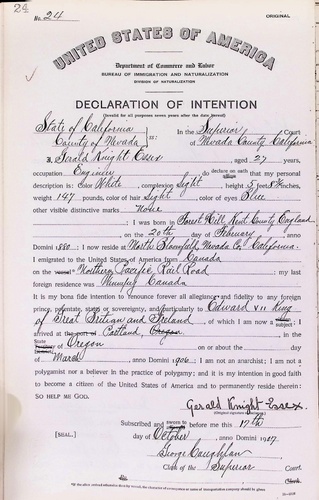 24
No. 24
ORIGINAL
UNITED STATES OF AMERICA
Department of Commerce and Labor
BUREAU OF IMMIGRATION AND NATURALIZATION
DIVISION OF NATURALIZATION
DECLARATION OF INTENTION
(Invalid for all purposes seven years after the date hereof)
State of California
County of Nevada ss:
In the Superior Court
of Nevada County California
I, Gerald Knight Essex, aged 27 years,
occupation Engineer, do declare on oath that my personal
description is: Color White, complexion Light, height 5 feet 8½ inches,
weight 147 pounds, color of hair Light, color of eyes Blue
other visible distinctive marks None
I was born in Forest Hill Kent County England
on the 20th day of February, anno
Domini 1880; I now reside at North Bloomfield, Nevada Co. California.
I emigrated to the United States of America from Canada
on the vessel Northern Pacific Rail Road; my last
foreign residence was Winnipeg Canada
It is my bona fide intention to renounce forever all allegiance and fidelity to any foreign
prince, potentate, state, or sovereignty, and particularly to Edward VII King
of Great Britian and Ireland, of which I am now a subject; I
arrived at the port of Portland, Oregon
State of Oregon on or about the day
of March, anno Domini 1906; I am not an anarchist; I am not a
polygamist nor a believer in the practice of polygamy; and it is my intention in good faith
to become a citizen of the United States of America and to permanently reside therein:
SO HELP ME GOD.
Gerald Knight Essex.
(Original signature of declarant)
Subscribed and sworn to before me this 17th
[SEAL.] day of October, anno Domini 1907
George Caughlan
Clerk of the Superior Court.